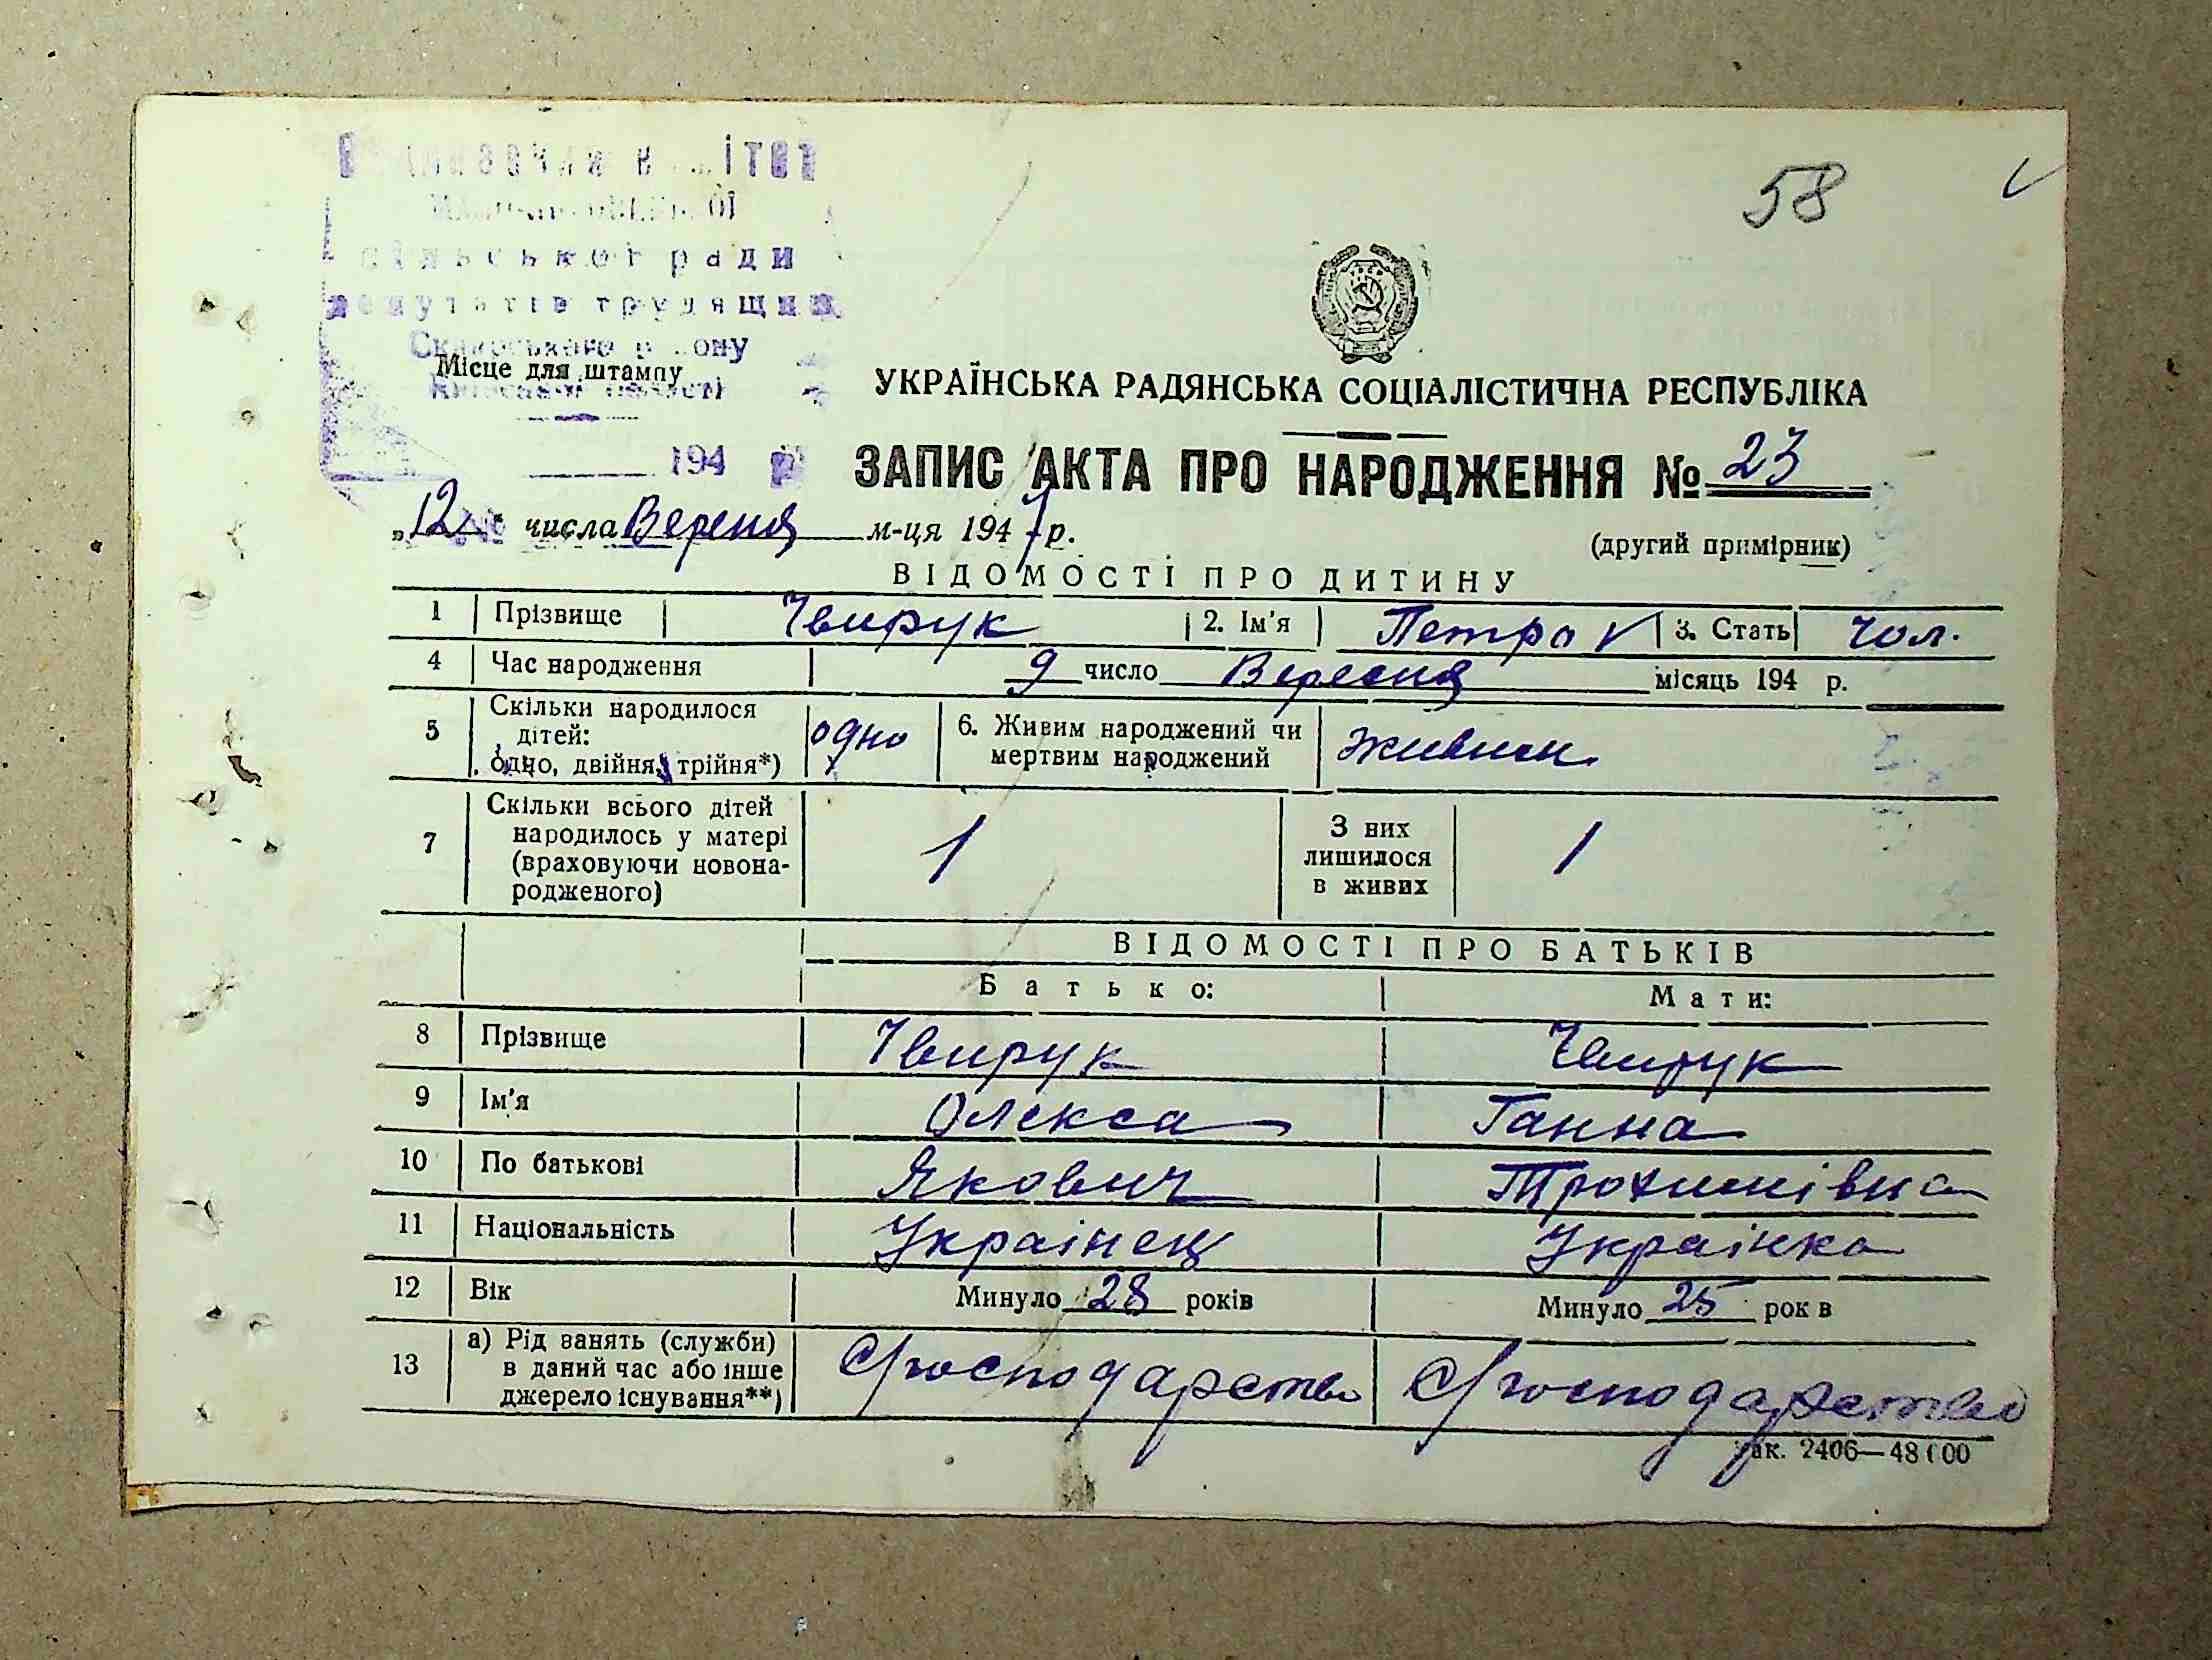 58
сільської ради
депутатів трудящих
Місце для штампу
194
УКРАЇНСЬКА РАДЯНСЬКА СОЦІАЛІСТИЧНА РЕСПУБЛІКА
ЗАПИС АКТА ПРО НАРОДЖЕННЯ № 23
„12“ числа Вересня м-ця 1947 р.
(другий примірник)
ВІДОМОСТІ ПРО ДИТИНУ
1 Прізвище Чвирук 2. Ім'я Петро 3. Стать чол.
4 Час народження 9 число Вересня місяць 194 р.
5 Скільки народилося дітей: одно, двійня, трійня*) одно 6. Живим народжений чи мертвим народжений живим
7 Скільки всього дітей народилось у матері (враховуючи новонародженого) 1 З них лишилося в живих 1
ВІДОМОСТІ ПРО БАТЬКІВ
Батько: Мати:
8 Прізвище Чвирук Чвирук
9 Ім'я Олекса Ганна
10 По батькові Якович Трохимівна
11 Національність Українець Українка
12 Вік Минуло 28 років Минуло 25 рок в
13 а) Рід занять (служби) в даний час або інше джерело існування**) С/господарство С/господарство
Зак. 2406—48000